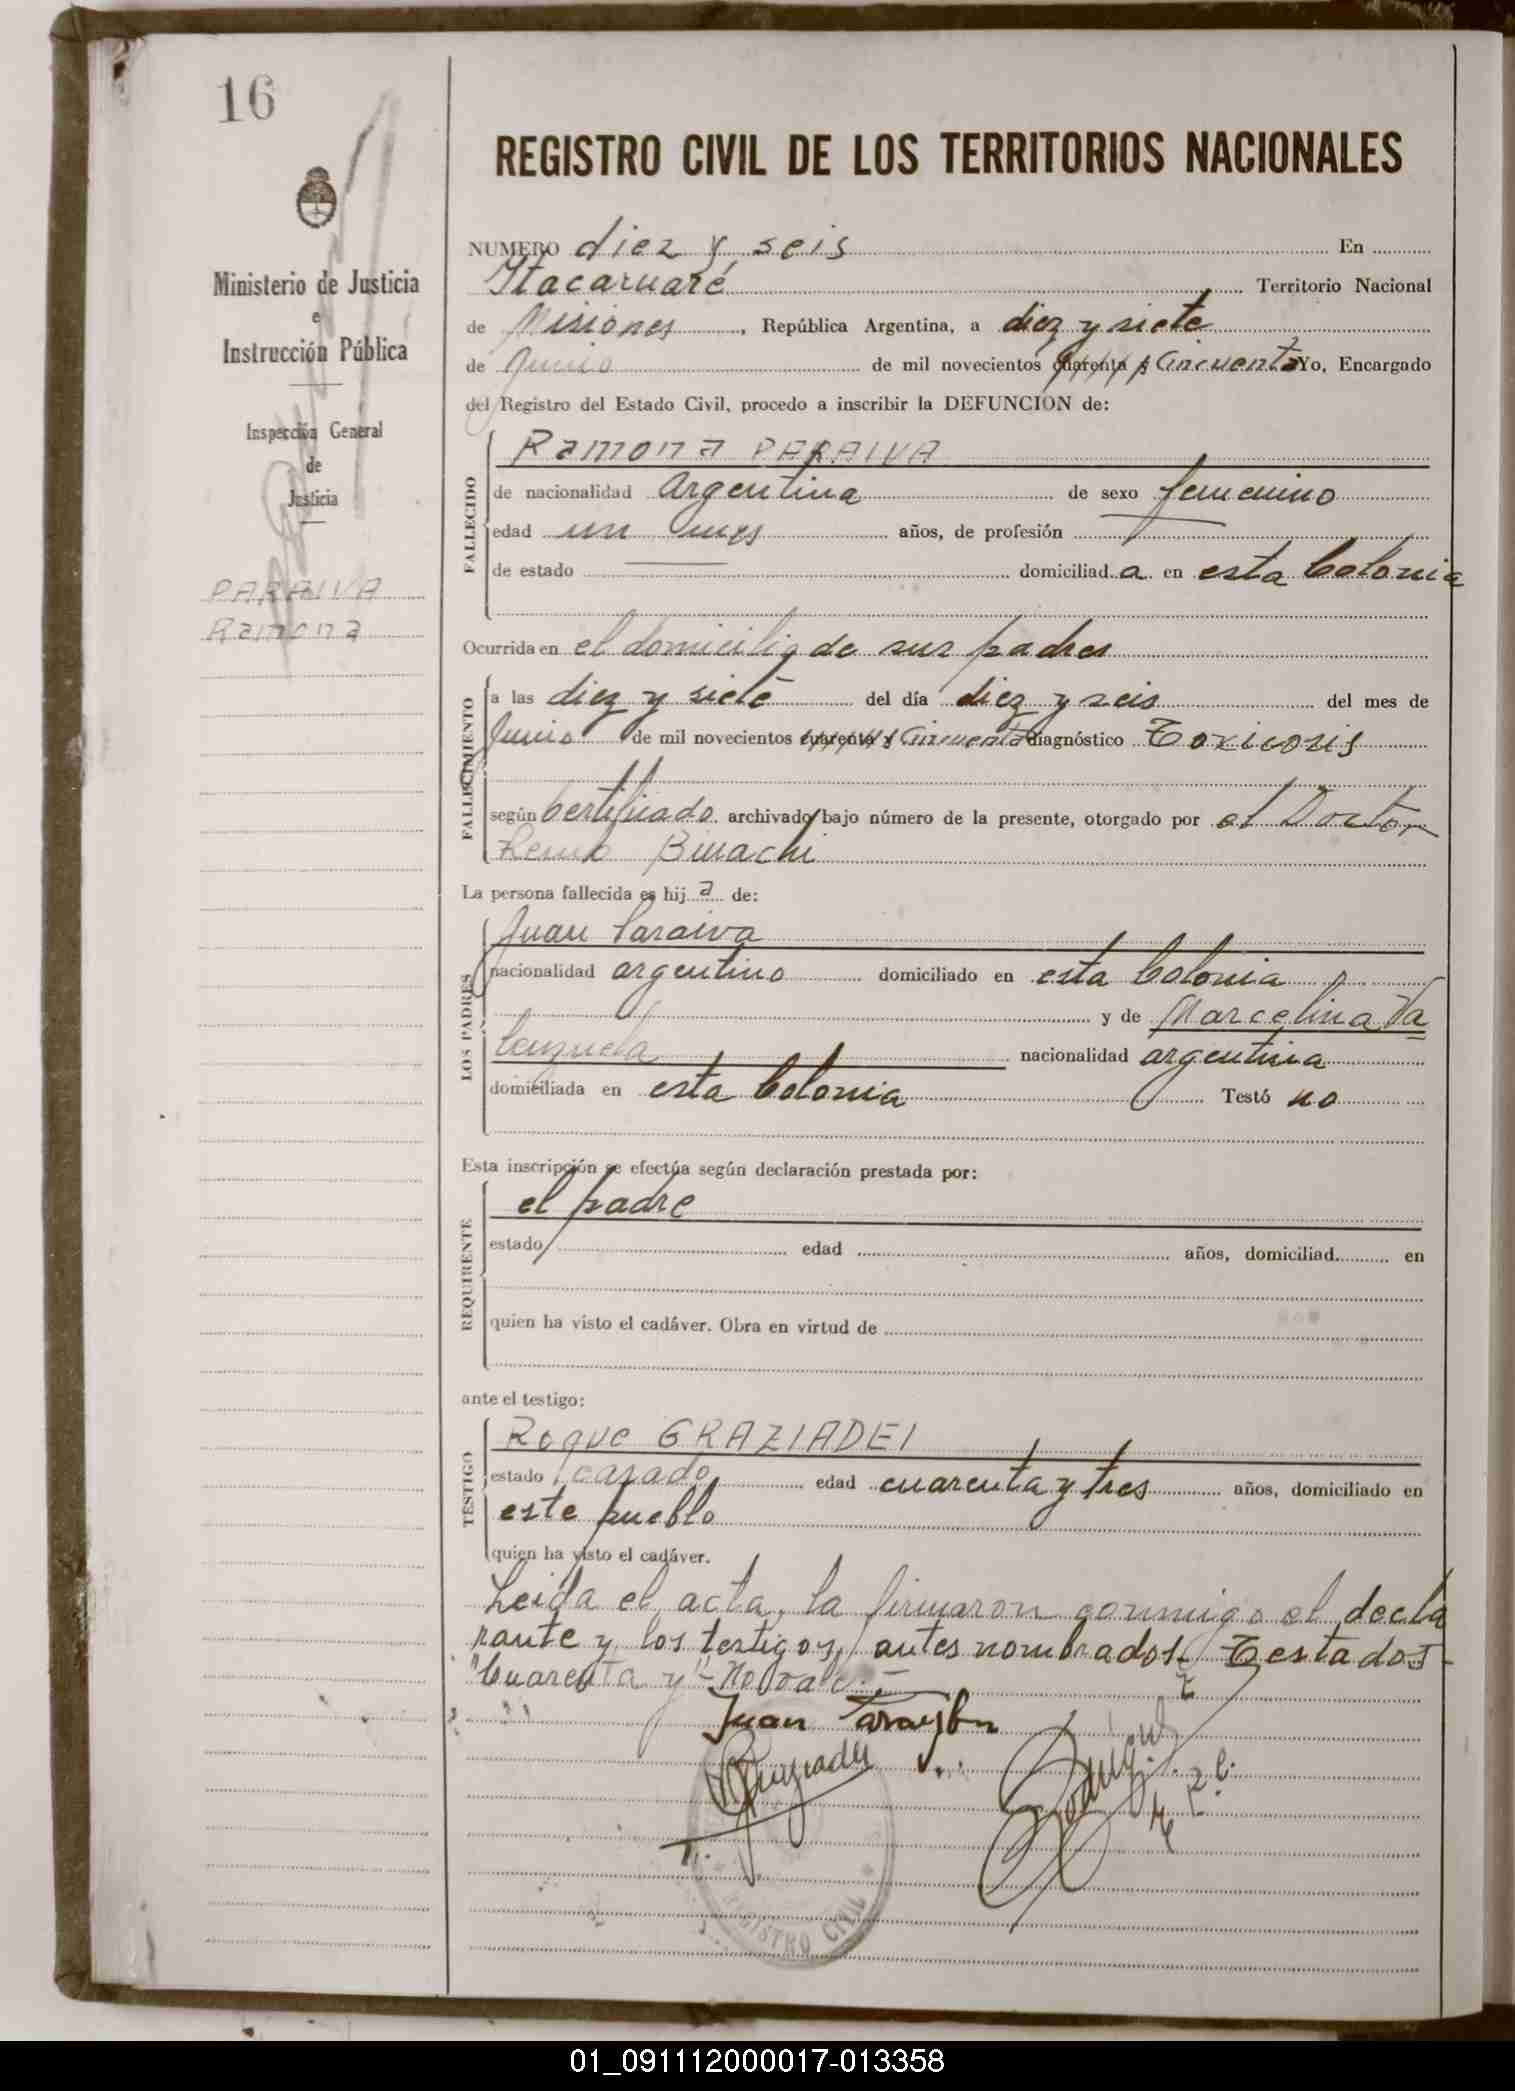 16
REGISTRO CIVIL DE LOS TERRITORIOS NACIONALES
Ministerio de Justicia
e
Instrucción Pública
Inspección General
de
Justicia
PARAIVA
Ramona
NUMERO diez y seis En
Itacaruaré Territorio Nacional
de Misiones, República Argentina, a diez y siete
de Junio de mil novecientos cuarenta y Cincuenta Yo, Encargado
del Registro del Estado Civil, procedo a inscribir la DEFUNCION de:
FALLECIDO
Ramona PARAIVA
de nacionalidad Argentina de sexo femenino
edad un mes años, de profesión
de estado domiciliada en esta Colonia
Ocurrida en el domicilio de sus padres
FALLECIMIENTO
a las diez y siete del día diez y seis del mes de
Junio de mil novecientos cuarenta y Cincuenta diagnóstico Toxicosis
según Certificado archivado bajo número de la presente, otorgado por el Doctor
La persona fallecida es hija de:
LOS PADRES
Juan Paraiva
nacionalidad argentino domiciliado en esta Colonia
y de Marcelina Va
lenzuela nacionalidad argentina
domiciliada en esta Colonia Testó no
Esta inscripción se efectúa según declaración prestada por:
REQUIRENTE
el padre
estado edad años, domiciliad en
quien ha visto el cadáver. Obra en virtud de
ante el testigo:
TESTIGO
Roque GRAZIADEI
estado casado edad cuarenta y tres años, domiciliado en
este pueblo
quien ha visto el cadáver.
Leida el acta, la firmaron conmigo el decla
rante y los testigos, antes nombrados. Testados
"Cuarenta y" No vale.
Juan
REGISTRO CIVIL
01_091112000017-013358